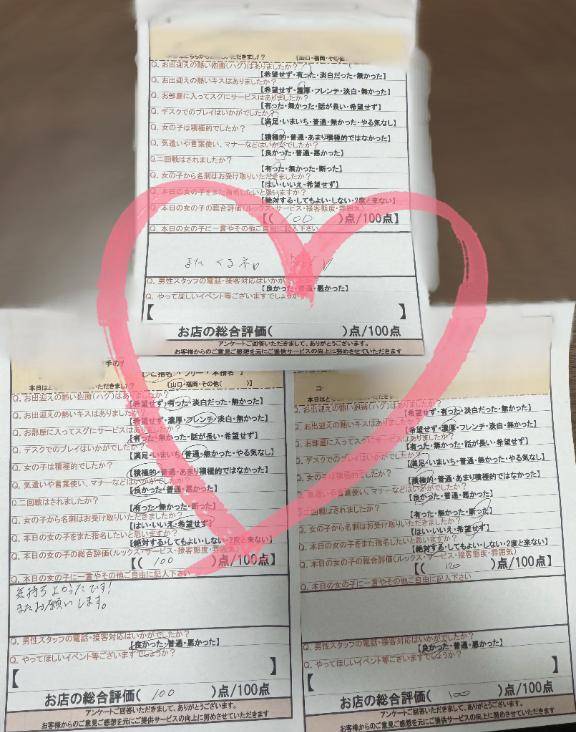 【山口・福岡・その他
Q. お出迎えの熱い抱擁(ハグ)はありましたか?
【希望せず・有った・淡白だった・無かった】
Q. お出迎えの熱いキスはありましたか?
【希望せず・濃厚・フレンチ・淡白・無かった】
Q. お部屋に入ってスグにサービスはありましたか?
【有った・無かった・話が長い・希望せず】
Q. デスクでのプレイはいかがでしたか?
【満足・いまいち・普通・無かった・やる気なし】
Q. 女の子は積極的でしたか?
【積極的・普通・あまり積極的ではなかった】
Q. 気遣いや言葉使い、マナーなどはいかがでしたか?
【良かった・普通・悪かった】
Q.二回戦はされましたか?
【有った・無かった・断った】
Q. 女の子から名刺はお受け取りいただきましたか?
【はい・いいえ・希望せず】
Q. 本日の女の子をまた指名したいと思いますか?
【絶対する・してもよい・しない・2度と来ない】
Q. 本日の女の子の総合評価(ルックス・サービス・接客態度・雰囲気)
【( 00 )点/100点】
Q. 本日の女の子に一言やその他ご自由に記入下さい
また くるネ
Q. 男性スタッフの電話・接客対応はいかがでしたか?
【良かった・普通・悪かった】
Q. やってほしいイベント等ございますでしょうか?
【
お店の総合評価( )点/100点
アンケートご回答いただきまして、ありがとうございます。
お客様からのご意見ご感想を元にご提供サービスの向上に努めさせていただきます
【山口・福岡・その他( )】
Q. お出迎えの熱い抱擁(ハグ)はありましたか?
【希望せず・有った・淡白だった・無かった】
Q. お出迎えの熱いキスはありましたか?
【希望せず・濃厚・フレンチ・淡白・無かった】
Q. お部屋に入ってスグにサービスは
【有った・無かった・話が長い・希望せず】
Q. デスクでのプレイはいかがでしたか?
【満足・いまいち・普通・無かった・やる気なし】
Q. 女の子は積極的でしたか?
【積極的・普通・あまり積極的ではなかった】
Q. 気遣いや言葉使い、マナーなどはいかがでしたか?
【良かった・普通・悪かった】
Q.二回戦はされましたか?
【有った・無かった・断った】
Q. 女の子から名刺はお受け取りいただきましたか?
【はい・いいえ・希望せず】
Q. 本日の女の子をまた指名したいと思いますか?
【絶対する・してもよい・しない・2度と来ない】
Q. 本日の女の子の総合評価(ルックス・サービス・接客態度・雰囲気)
【( 100 )点/100点】
Q. 本日の女の子に一言やその他ご自由に記入下さい
気持ちよかったです!
またお願いします。
Q. 男性スタッフの電話・接客対応はいかがでしたか?
【良かった・普通・悪かった】
Q. やってほしいイベント等ございますでしょうか?
【
お店の総合評価( 100 )点/100点
アンケートご回答いただきまして、ありがとうございます。
お客様からのご意見ご感想を元にご提供サービスの向上に努めさせていただきます
Q. お出迎えの熱い抱擁(ハグ)はありましたか?
【希望せず・有った・淡白だった・無かった】
Q. お出迎えの熱いキスはありましたか?
【希望せず・濃厚・フレンチ・淡白・無かった】
Q. お部屋に入ってスグにサービスはありましたか?
【有った・無かった・話が長い・希望せず】
Q. デスクでのプレイはいかがでしたか?
【満足・いまいち・普通・無かった・やる気なし】
Q. 女の子は積極的でしたか?
【積極的・普通・あまり積極的ではなかった】
Q. 気遣いや言葉使い、マナーなどはいかがでしたか?
【良かった・普通・悪かった】
Q.二回戦はされましたか?
【有った・無かった・断った】
Q. 女の子から名刺はお受け取りいただきましたか?
【はい・いいえ・希望せず】
Q. 本日の女の子をまた指名したいと思いますか?
【絶対する・してもよい・しない・2度と来ない】
Q. 本日の女の子の総合評価(ルックス・サービス・接客態度・雰囲気)
【( 120 )点/100点】
Q. 本日の女の子に一言やその他ご自由に記入下さい
Q. 男性スタッフの電話・接客対応はいかがでしたか?
【良かった・普通・悪かった】
Q. やってほしいイベント等ございますでしょうか?
【
お店の総合評価( 100 )点/100点
アンケートご回答いただきまして、ありがとうございます。
お客様からのご意見ご感想を元にご提供サービスの向上に努めさせていただきます